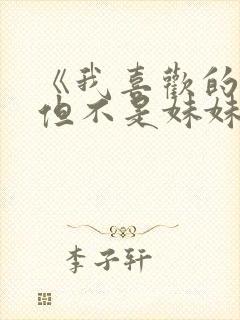 《我喜歡的
但不是妹妹
李子轩